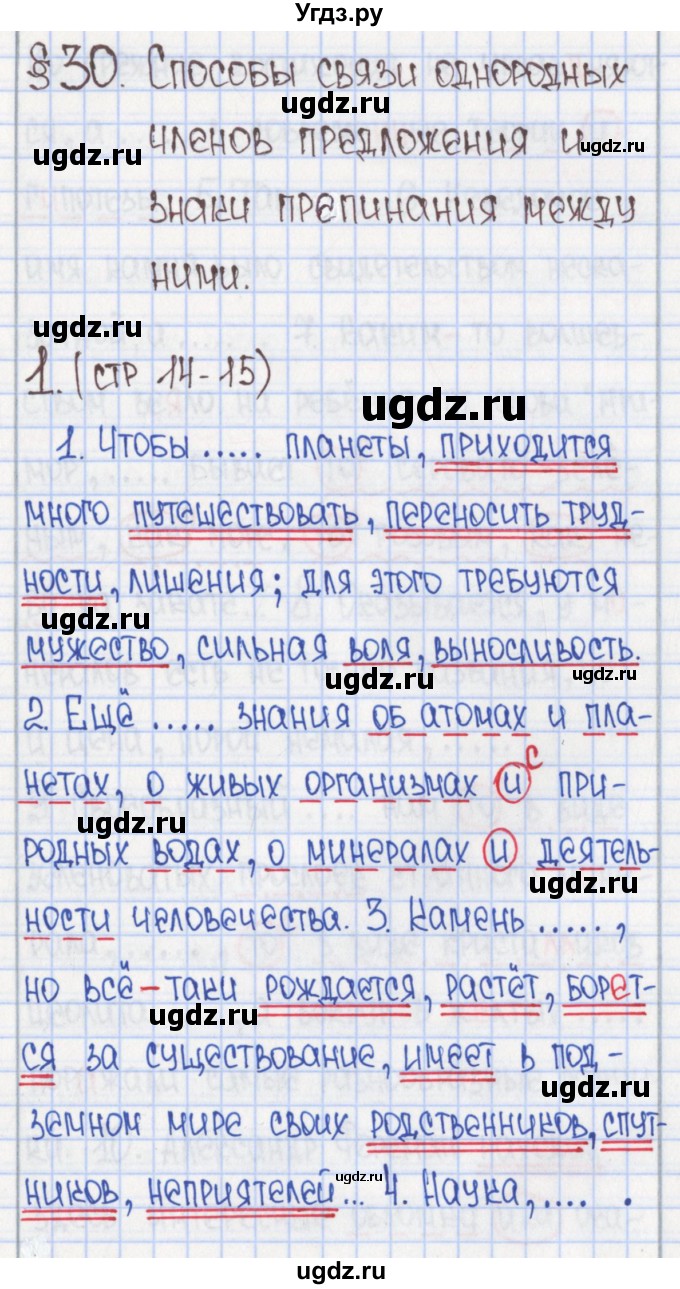 Угдз.ру
§30. Способы связи однородных
ugdz.ru
членов предложения и
ugdz.ru
ugdz.ru
знаки препинания между
ugdz.ru
ними.
ugdz.ru
1. (стр 14-15)
ugdz.ru
1. Чтобы ..... планеты, приходится
много путешествовать, переносить труд-
ности, лишения; для этого требуются
ugdz.ru
мужество, сильная воля, выносливость.
ugdz.ru
ugdz.ru
2. Ещё ..... знания об атомах и пла-
с
нетах, о живых организмах и при-
ugdz.ru
родных водах, о минералах и деятель-
ugdz.ru
ности человечества. 3. Камень .....,
но всё-таки рождается, растёт, борет-
ugdz.ru
ся за существование, имеет в под-
ugdz.ru
земном мире своих родственников, спут-
ugdz.ru
ников, неприятелей... 4. Наука, .... .
ugdz.ru
ugdz.ru